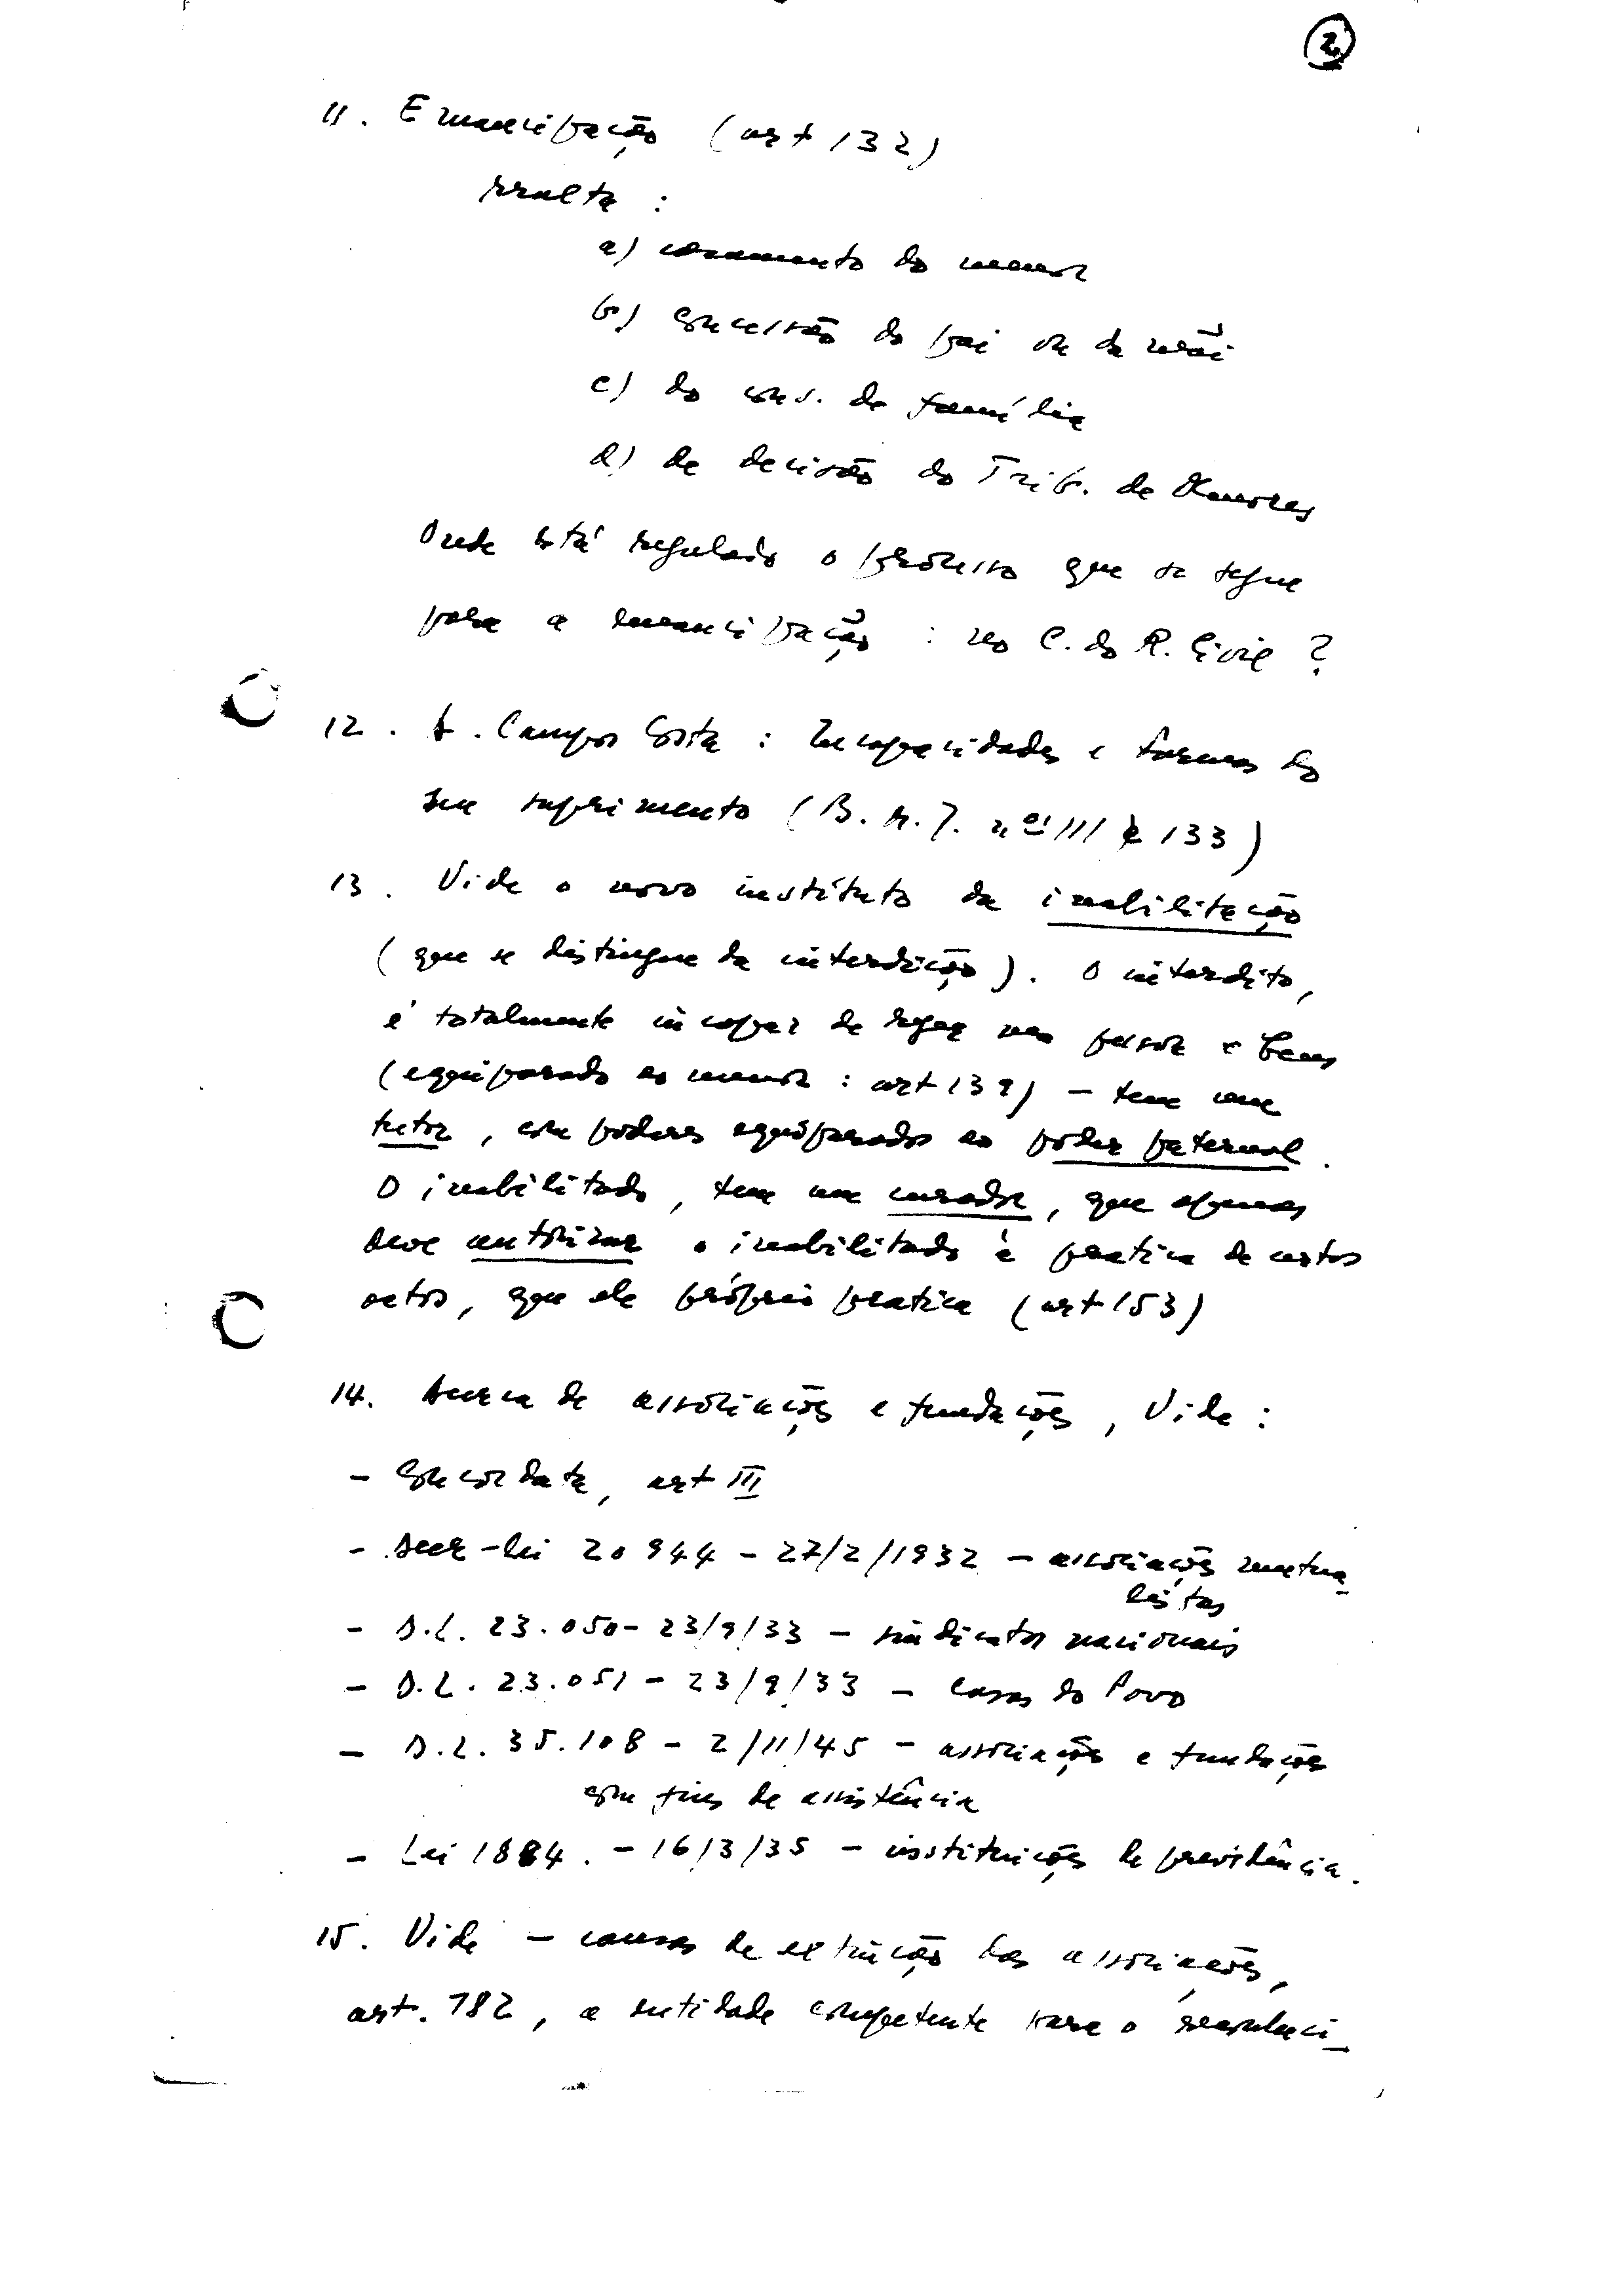 2
11. Emancipação (art 132)
resulta :
a) casamento do menor
b) concessão do pai ou da mãi
c) do cons. de família
d) de decisão do Trib. de Menores
Onde está regulado o processo que se segue
para a emancipação : no C. do R. Civil ?
12. A. Campos Costa : Incapacidades e formas do
seu suprimento (B. M. J. nos 111 e 133)
13. Vide o novo instituto da inabilitação
(que se distingue da interdição). O interdito,
é totalmente incapaz de reger sua pessoa e bens
(equiparado ao menor : art 139) - tem um
tutor, com poderes equiparados ao poder paternal.
O inabilitado, tem um curador, que apenas
deve autorizar o inabilitado à pratica de certos
actos, que ele próprio pratica (art 153)
14. Acerca de associações e fundações, Vide :
- Concordata, art III
- Decr-lei 20 944 - 27/2/1932 - associações mutua_
listas
- D.L. 23.050 - 23/9/33 - sindicatos nacionais
- D.L. 23.051 - 23/9/33 - Casas do Povo
- D.L. 35.108 - 2/11/45 - associações e fundações
com fins de assistência
- Lei 1884. - 16/3/35 - instituições de previdência.
15. Vide - causas de extinção das associações,
art. 182, a entidade competente para o reconheci_